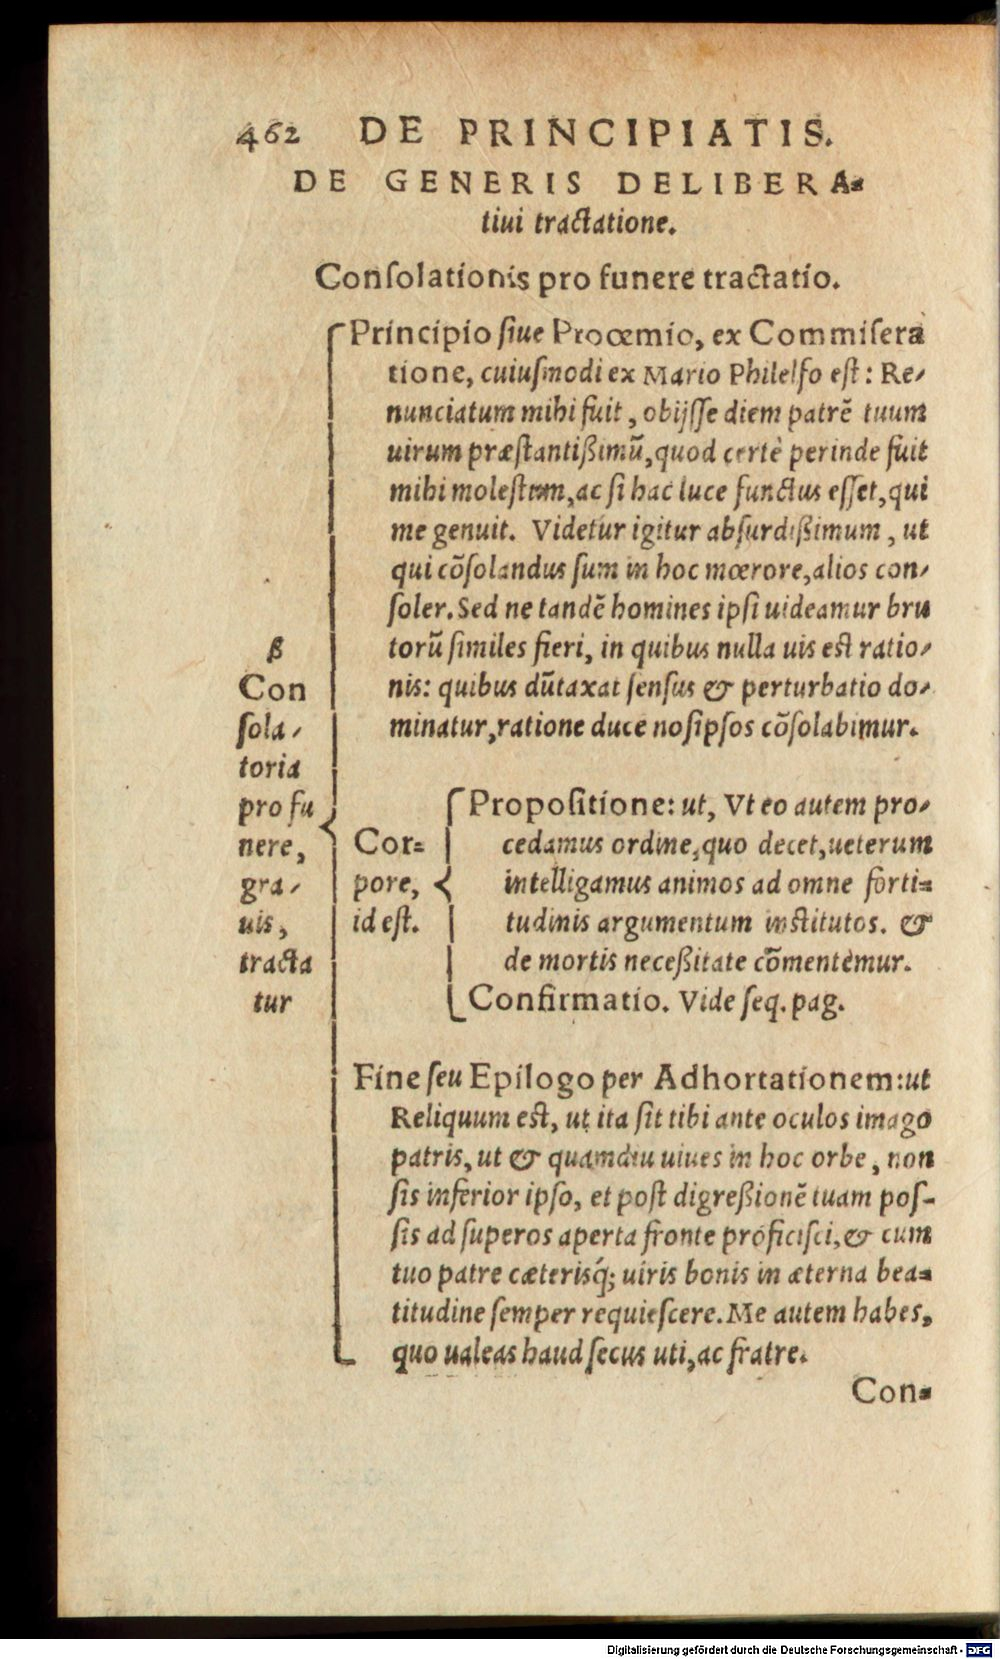 462 DE PRINCIPIATIS.
DE GENERIS DELIBERA-
tiui tractatione.
Conſolationis pro funere tractatio.
Principio ſiue Prooemio, ex Commiſera
tione, cuiuſmodi ex Mario Philelfo eſt: Re-
nunciatum mihi fuit, obijſſe diem patrē tuum
uirum præſtantißimū, quod certè perinde fuit
mihi moleſtum, ac ſi hac luce functus eſſet, qui
me genuit. Videtur igitur abſurdißimum, ut
qui cōſolandus ſum in hoc mœrore, alios con-
ſoler. Sed ne tandē homines ipſi uideamur bru
torū ſimiles fieri, in quibus nulla uis eſt ratio-
nis: quibus dūtaxat ſenſus & perturbatio do-
minatur, ratione duce noſipſos cōſolabimur.
ß
Con
ſola-
toria
pro fu
nere,
gra-
uis,
tracta
tur
Cor-
pore,
id eſt.
Propoſitione: ut, Vt eo autem pro-
cedamus ordine, quo decet, ueterum
intelligamus animos ad omne forti-
tudinis argumentum inſtitutos. &
de mortis neceßitate cōmentemur.
Confirmatio. Vide ſeq. pag.
Fine ſeu Epilogo per Adhortationem: ut
Reliquum eſt, ut ita ſit tibi ante oculos imago
patris, ut & quamdiu uiues in hoc orbe, non
ſis inferior ipſo, et poſt digreßionē tuam poſ-
ſis ad ſuperos aperta fronte proficiſci, & cum
tuo patre cæterisq́; uiris bonis in æterna bea-
titudine ſemper requieſcere. Me autem habes,
quo ualeas haud ſecus uti, ac fratre.
Con-
Digitalisierung gefördert durch die Deutsche Forschungsgemeinschaft - DFG